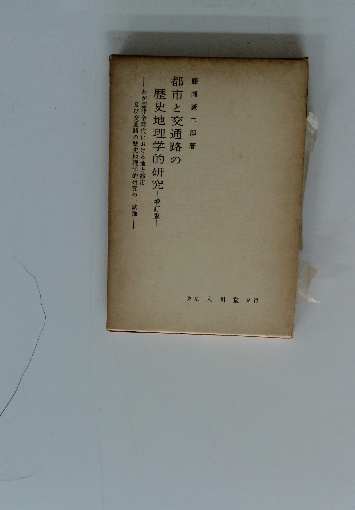 藤岡謙二郎著
都市と交通路の
歴史地理学的研究―増訂版―
―わが国律令時代における地方都市
及び交通路の歴史地理学的研究の一試論―
東京 大明堂 発行